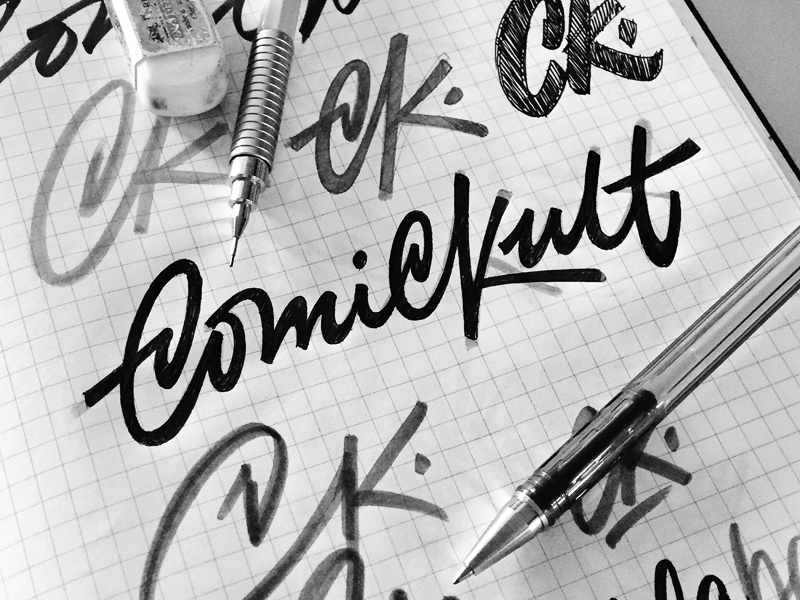 CK.
CK.
CK
ComicKult
CK.
CK.